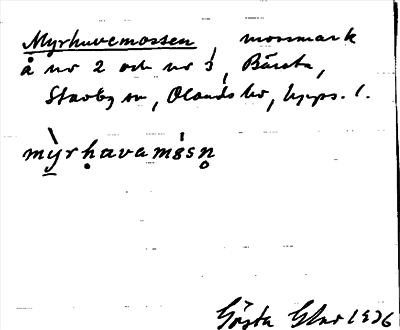 Myrhavemossen, mossmark
å nr 2 och nr 3, Bärsta,
Stavby sn, Olands hd, Upps. l.
mỳrḥavamósn̥
Gösta 1936